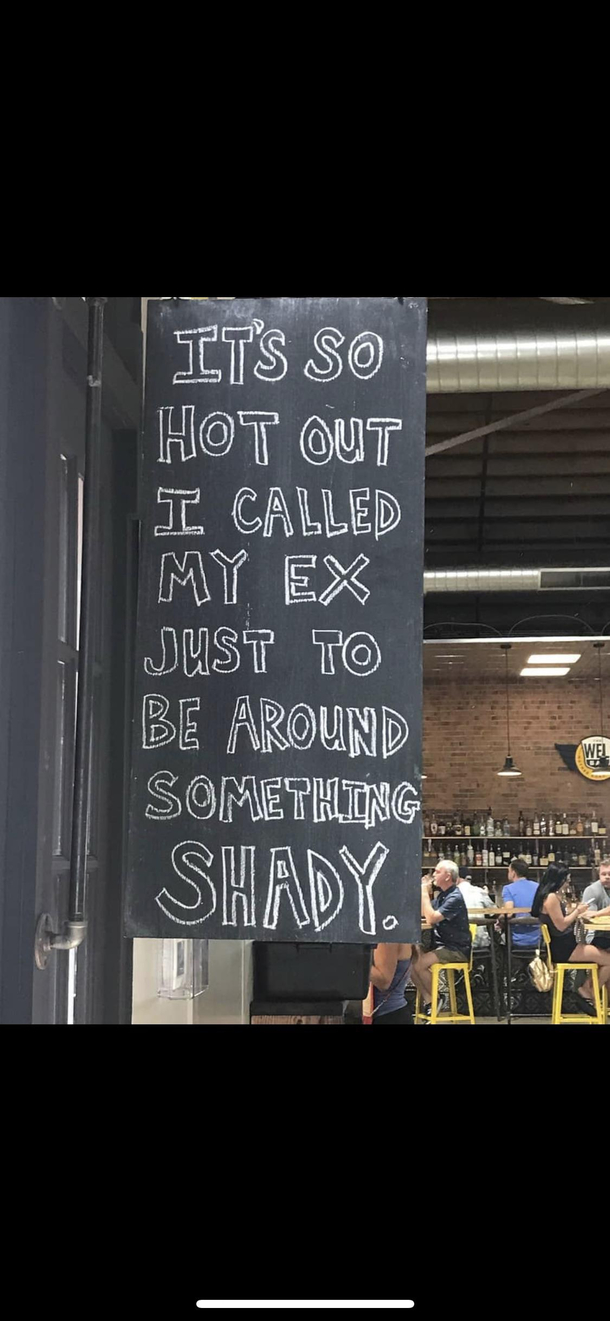 IT'S SO
HOT OUT
I CALLED
MY EX
JUST TO
BE AROUND
SOMETHING
SHADY.
WEL